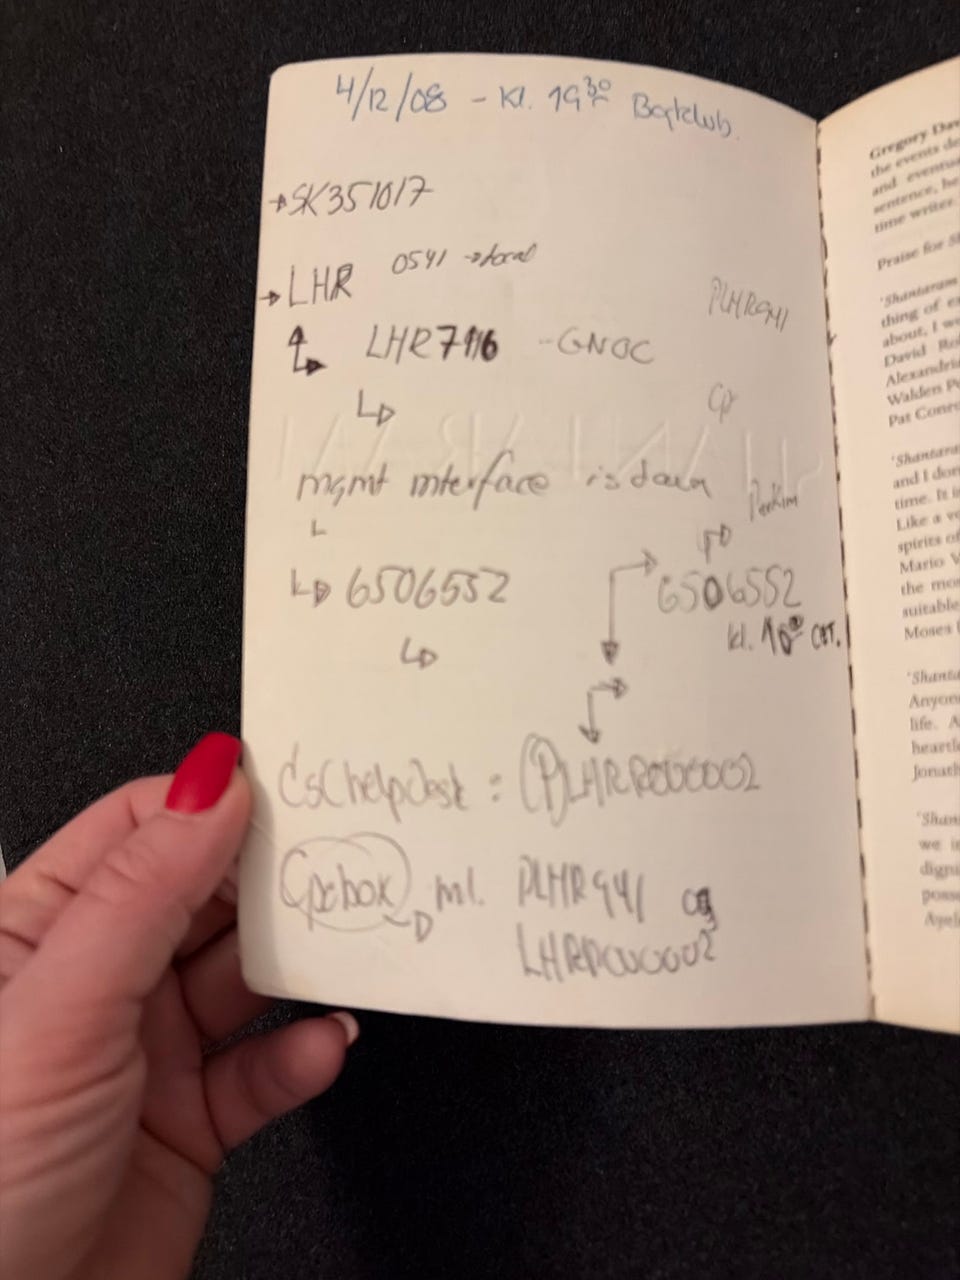 4/12/08 - Kl. 19³⁰
SK351017
LHR 0541 → local
PLHR941
LHR7116 - GNOC
mgmt interface is down
6506552
6506552
kl. CET.
CSC helpdesk :
pcbox ml. PLHR941 og
Gregory Dav
the events de
and eventua
sentence, he
time writer.
Praise for Sh
'Shantaram
thing of ex
about, I w
David Ro
Alexandria
Walden Po
Pat Conro
'Shantara
and I don
time. It is
Like a vo
spirits of
Mario V
the mos
suitable
Moses I
'Shanta
Anyon
life. A
heartle
Jonath
'Shan
we in
digni
posse
Ayele